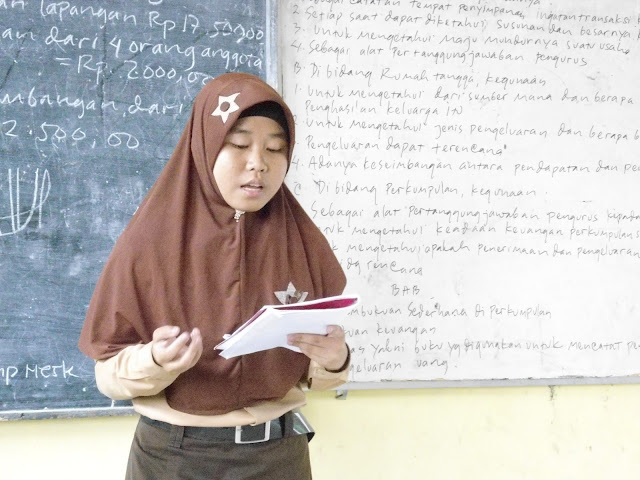 lapangan Rp 17.500,00
dari 4 orang anggota
= Rp. 2000,00
mbangan, dari
2.500,00
Merk
catatan tempat penyimpanan ingatan transaksi
2. Setiap saat dapat diketahui susunan dan besarnya
3. Untuk mengetahui maju mundurnya suatu usaha
4. Sebagai alat Pertanggungjawaban pengurus
B. Di bidang Rumah tangga, kegunaan
1. Untuk mengetahui dari sumber mana dan berapa
Penghasilan keluarga itu
Untuk mengetahui jenis pengeluaran dan berapa
Pengeluaran dapat terencana
4. Adanya keseimbangan antara pendapatan dan
C. Di bidang Perkumpulan, kegunaan.
Sebagai alat Pertanggungjawaban pengurus
mengetahui keadaan keuangan perkumpulan
mengetahui apakah penerimaan dan pengeluaran
rencana
BAB
mbukuan Sederhana di Perkumpulan
keuangan
yakni buku yg digunakan untuk mencatat
geluaran uang